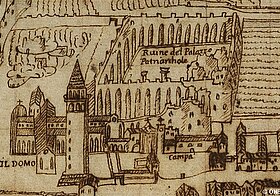 Ruine del Palazo
Patriarchale
IL DOMO
Campa